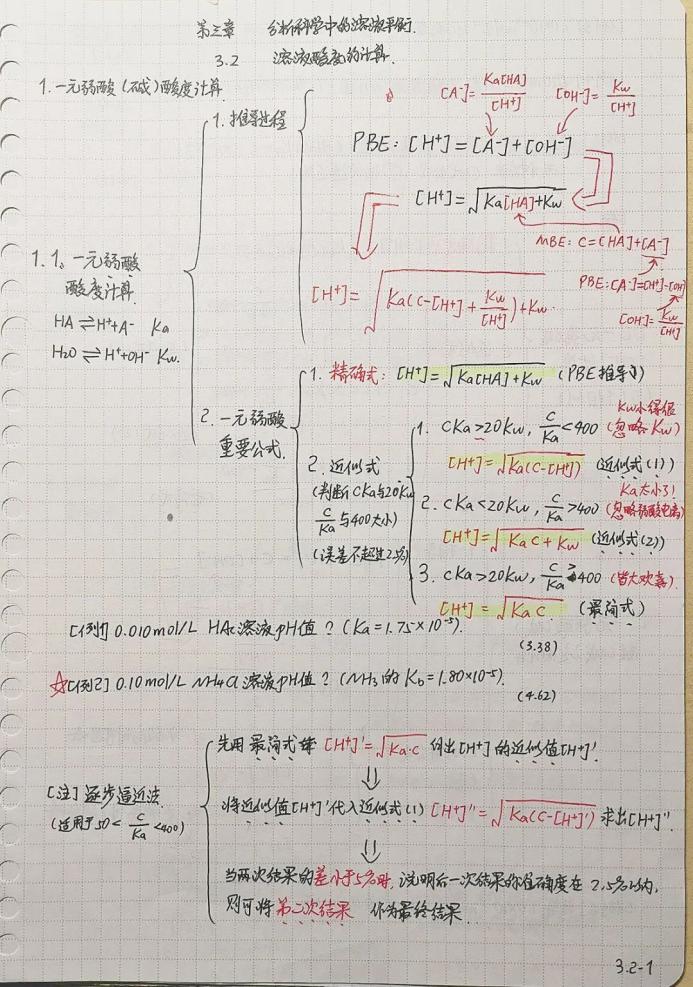 第三章 分析科学中的溶液平衡.
3.2 溶液酸度的计算.
1. 一元弱酸(碱)酸度计算
1. 推导过程
[A⁻]=Ka[HA]/[H⁺] [OH⁻]=Kw/[H⁺]
PBE: [H⁺]=[A⁻]+[OH⁻]
[H⁺]=√(Ka[HA]+Kw)
MBE: C=[HA]+[A⁻]
1.1. 一元弱酸
酸度计算.
HA⇌H⁺+A⁻ Ka
H₂O⇌H⁺+OH⁻ Kw.
PBE:[A⁻]=[H⁺]-[OH⁻]
[H⁺]=√(Ka(C-[H⁺]+Kw/[H⁺])+Kw)
[OH⁻]=Kw/[H⁺]
2. 一元弱酸
重要公式.
1. 精确式: [H⁺]=√(Ka[HA]+Kw) (PBE推导)
2. 近似式
(判断CKa与20Kw
C/Ka与400大小)
(误差不超过2.5%)
1. CKa>20Kw, C/Ka<400 (忽略Kw)
Kw小得很
[H⁺]=√(Ka(C-[H⁺])) (近似式(1))
2. CKa<20Kw, C/Ka>400 (忽略弱酸电离)
Ka太小了!
[H⁺]=√(KaC+Kw) (近似式(2))
3. CKa>20Kw, C/Ka>400 (皆大欢喜).
[H⁺]=√(KaC) (最简式)
[例1] 0.010mol/L HAc溶液pH值? (Ka=1.75×10⁻⁵).
(3.38)
☆[例2] 0.10mol/L NH4Cl溶液pH值? (NH₃的Kb=1.80×10⁻⁵).
(4.62)
[注] 逐步逼近法
(适用于50<C/Ka<400)
先用最简式 [H⁺]'=√(Ka·C) 得出[H⁺]的近似值[H⁺]'.
⇓
将近似值[H⁺]'代入近似式(1) [H⁺]''=√(Ka(C-[H⁺]')) 求出[H⁺]''.
⇓
当两次结果的差小于5%时, 说明后一次结果的准确度在2.5%以内,
则可将第二次结果 作为最终结果.
3.2-1